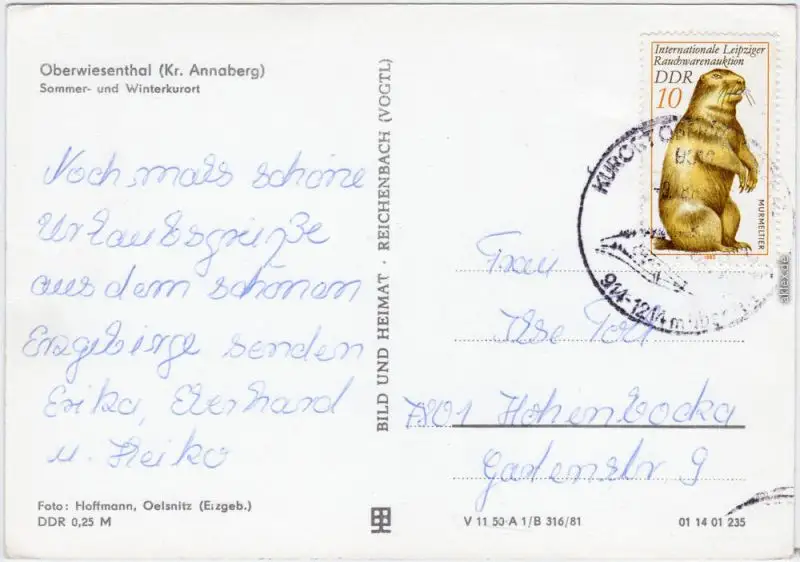 Oberwiesenthal (Kr. Annaberg)
Sommer- und Winterkurort
Nochmals schöne
Urlaubsgrüße
aus dem schönen
Erzgebirge senden
Erika, Eberhard
u. Heiko
Foto: Hoffmann, Oelsnitz (Erzgeb.)
DDR 0,25 M
BILD UND HEIMAT · REICHENBACH (VOGTL)
Internationale Leipziger
Rauchwarenauktion
DDR
10
MURMELTIER
1982
KURORT
914-1214 m
Frau
Ilse
7801 Hohenbocka
Gartenstr. 9
V 11 50 A 1/B 316/81
01 14 01 235
aklex.de